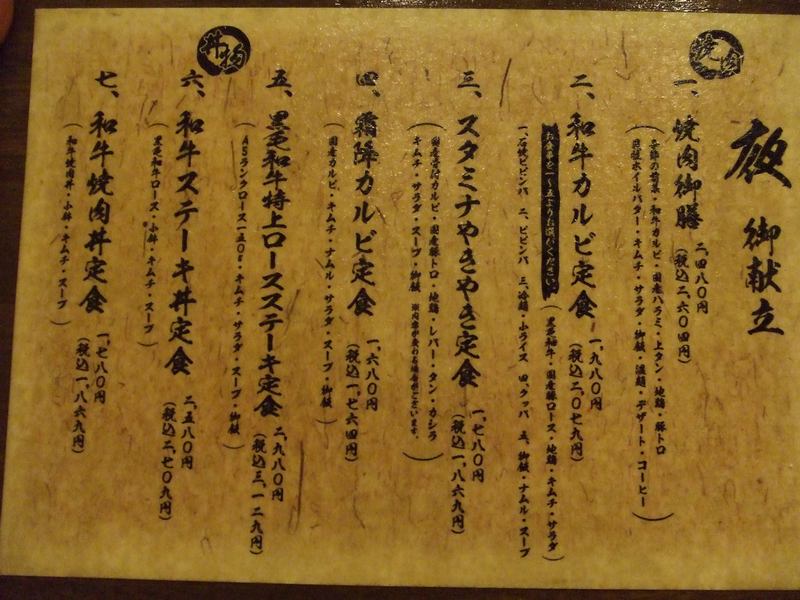 夜 御献立
焼肉
一、焼肉御膳 二、四八〇円
(税込二、六〇四円)
(季節の前菜・和牛カルビ・国産ハラミ・上タン・地鶏・豚トロ
ホイルバター・キムチ・サラダ・御飯・温麺・デザート・コーヒー)
二、和牛カルビ定食 一、九八〇円
(税込二、〇七九円)
(黒毛和牛・国産豚ロース・地鶏・キムチ・サラダ)
お食事を一〜五よりお選びください。
一、石焼ビビンバ 二、ビビンバ 三、冷麺・小ライス 四、クッパ 五、御飯・ナムル・スープ
三、スタミナやきやき定食 一、七八〇円
(税込一、八六九円)
(国産骨付カルビ・国産豚トロ・地鶏・レバー・タン・カシラ
キムチ・サラダ・スープ・御飯 ※内容が変わる場合がございます。)
四、霜降カルビ定食 一、六八〇円
(税込一、七六四円)
(国産カルビ・キムチ・ナムル・サラダ・スープ・御飯)
五、黒毛和牛特上ロースステーキ定食 二、九八〇円
(税込三、一二九円)
(A5ランクロース一五〇g・キムチ・サラダ・スープ・御飯)
丼物
六、和牛ステーキ丼定食 二、五八〇円
(税込二、七〇九円)
(黒毛和牛ロース・小鉢・キムチ・スープ)
七、和牛焼肉丼定食 一、七八〇円
(税込一、八六九円)
(和牛焼肉丼・小鉢・キムチ・スープ)